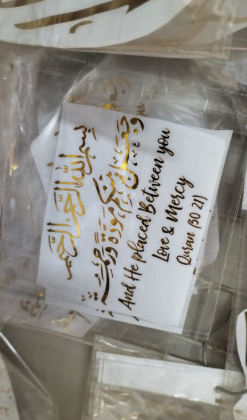 بسم الله الرحمن الرحيم
وجعل بينكم مودة ورحمة
And He placed Between you
Love & Mercy
Quran 30:21